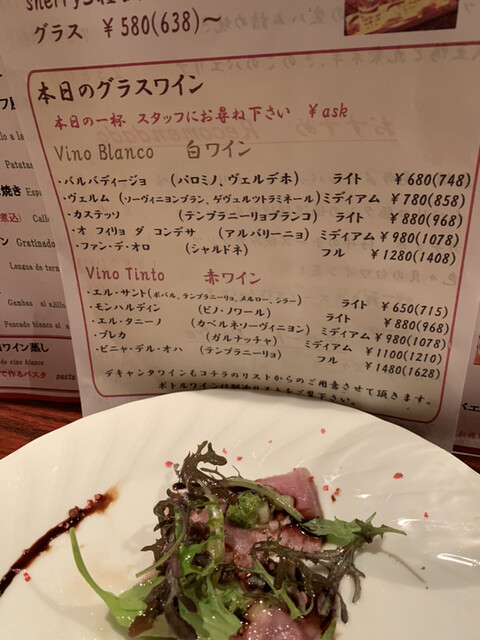 グラス ￥580(638)～
本日のグラスワイン
本日の一杯 スタッフにお尋ね下さい ￥ask
Vino Blanco 白ワイン
・バルバディージョ (パロミノ、ヴェルデホ) ライト ￥680(748)
・ヴェルム (ソーヴィニヨンブラン、ゲヴュルツトラミネール) ミディアム ￥780(858)
・カステッソ (テンプラニーリョブランコ) ライト ￥880(968)
・オ フィリョ ダ コンデサ (アルバリーニョ) ミディアム ￥980(1078)
・ファン・デ・オロ (シャルドネ) フル ￥1280(1408)
Vino Tinto 赤ワイン
・エル・サント(ボバル、テンプラニーリョ、メルロー、シラー) ライト ￥650(715)
・モンハルディン (ピノ・ノワール) ライト ￥880(968)
・エル・タニーノ (カベルネソーヴィニヨン) ミディアム ￥980(1078)
・ブレカ (ガルナッチャ) ミディアム ￥1100(1210)
・ビニャ・デル・オハ (テンプラニーリョ) フル ￥1480(1628)
デキャンタワインもコチラのリストからのご用意させて頂きます。
Patatas
焼き Espa
煮込) Callo
ン Gratinado
Lengua de tern
Gambas al ajillo
Pescado blanco al
ワイン蒸し
de vino blanco
で作るパスタ pasta